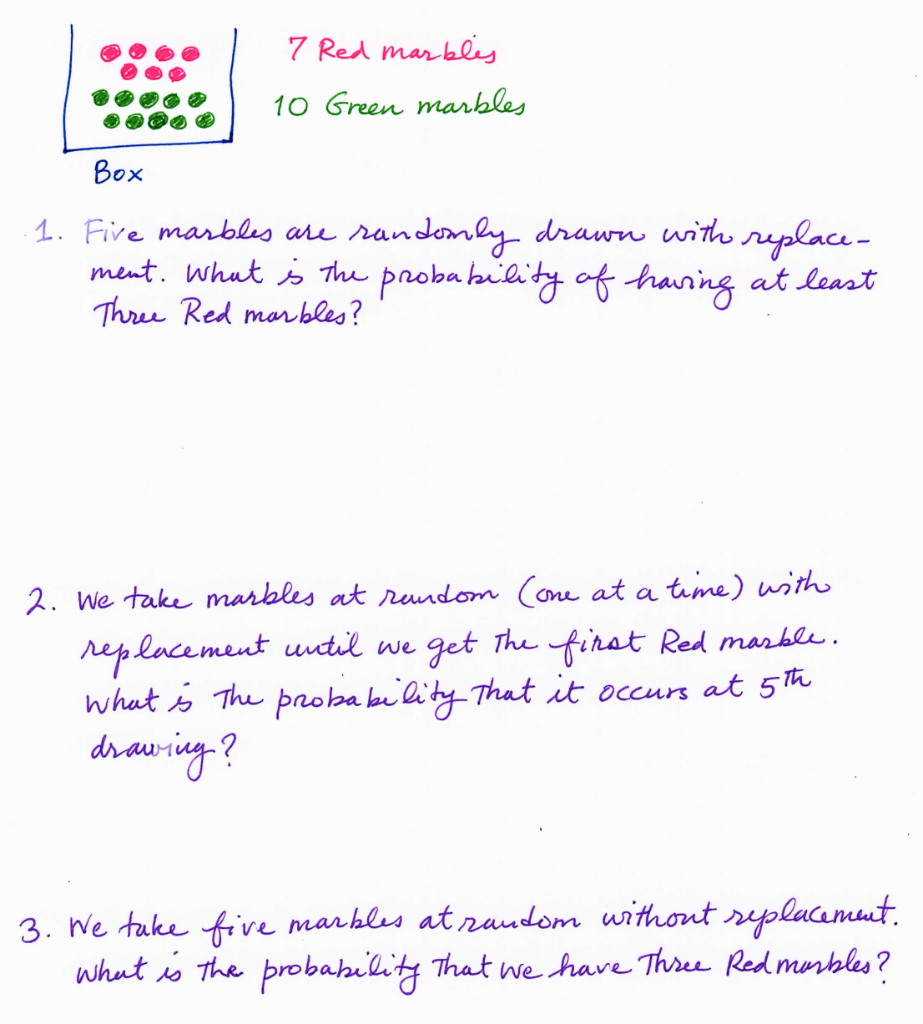 7 Red marbles
10 Green marbles
Box
1. Five marbles are randomly drawn with replace-
ment. What is the probability of having at least
Three Red marbles?
2. We take marbles at random (one at a time) with
replacement until we get the first Red marble.
What is the probability that it occurs at 5th
drawing?
3. We take five marbles at random without replacement.
What is the probability that we have Three Red marbles?